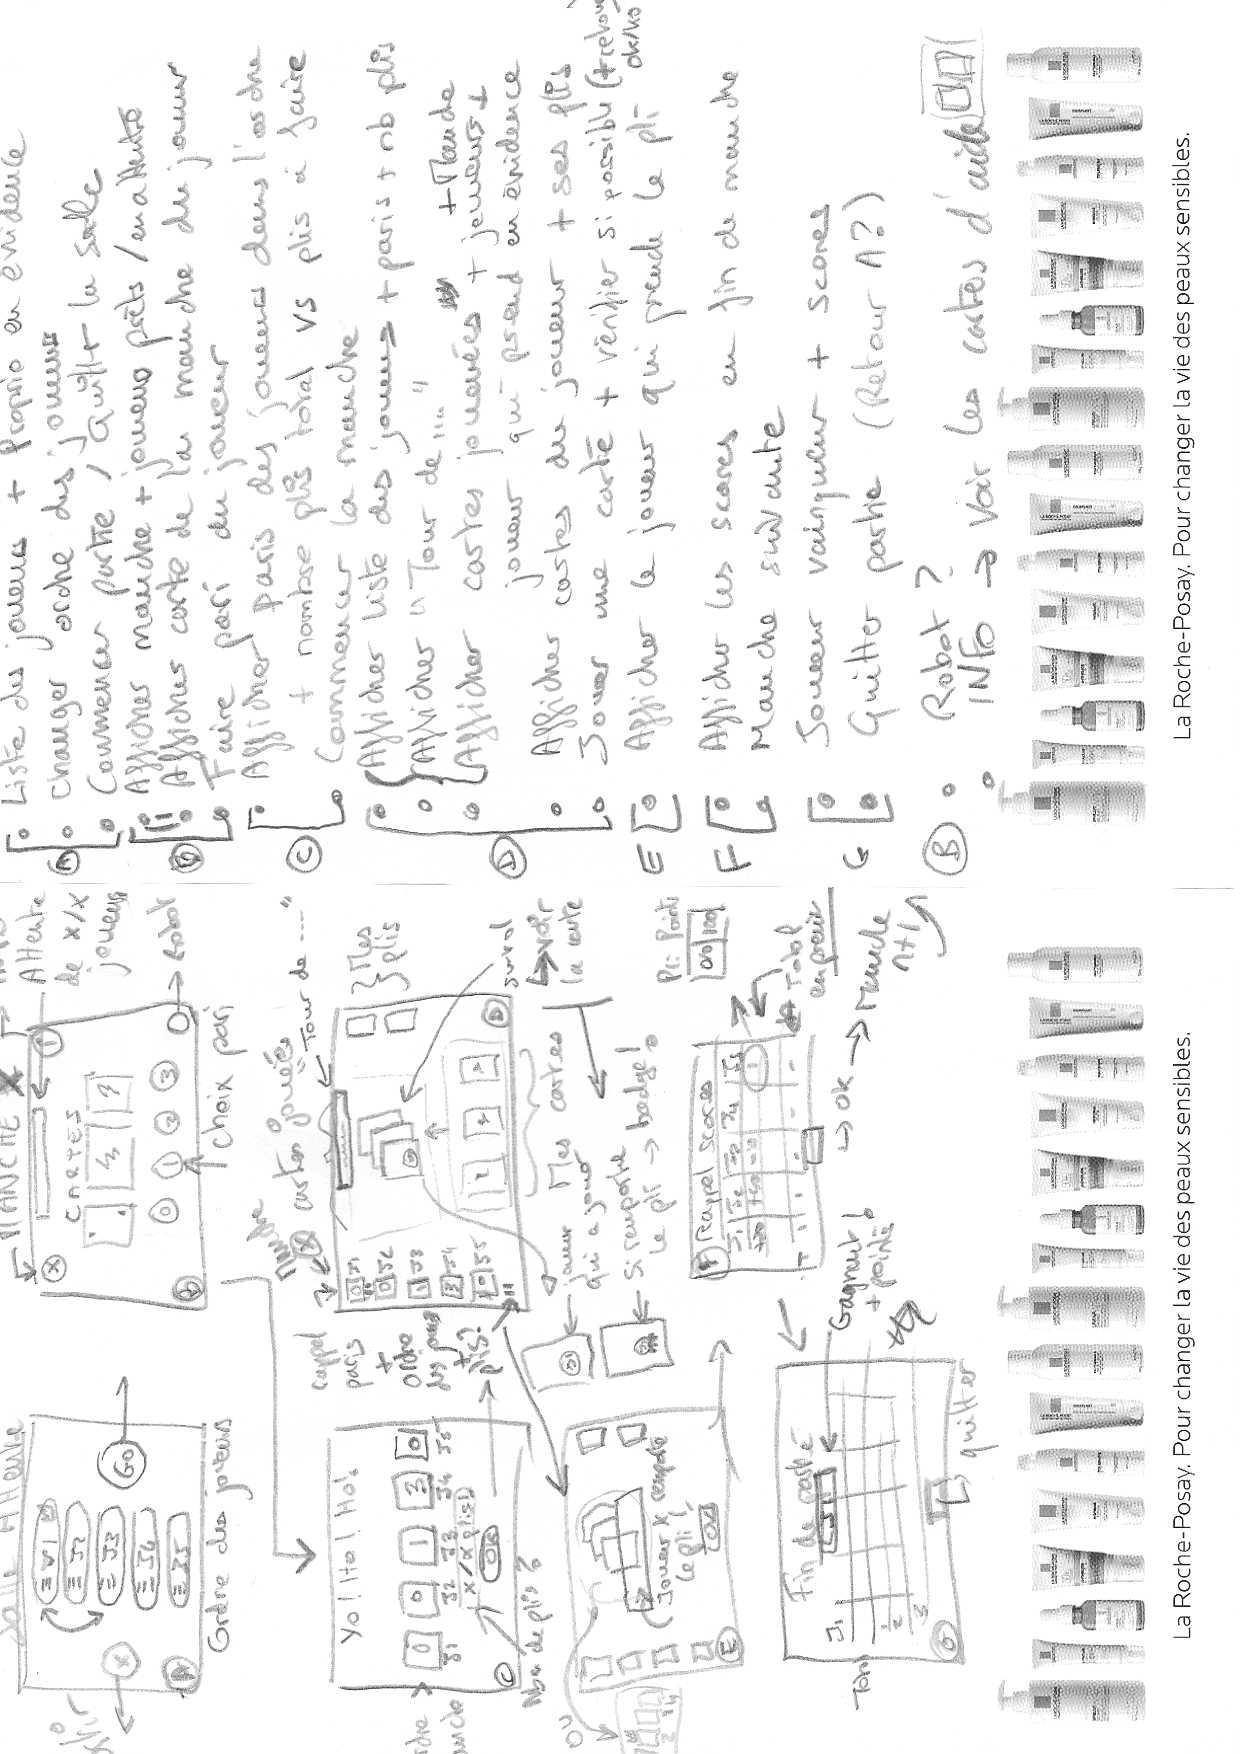 Salle Attente
J2
J3
Go
J4
J5
A
Ordre des joueurs
MANCHE X
X
i
Attente
de x/x
joueurs
CARTES
0 1 2 3
B
Robot
choix pari
Yo! Ho! Ho!
0 0 1 3 0
J1 J2 J3 J4 J5
x/x plis
OK
C
Nbr de plis
rappel
paris
+
ordre
des joueurs
+
plis?
Manche
X cartes jouées
"Tour de ...."
J1
J2
J3
J4
J5
Mes
plis
D
Mes cartes
survol
voir
la carte
joueur
qui a joué
Si remporte
le pli → badge!
OU
Joueur X remporte
le pli!
OK
E
F Rappel scores
J1 J2 J3 J4 J5
Pli Points
0/0 100
Total
→ OK → Manche
n+1
Fin de partie
J1
Total
1
2
3
G
Gagnant!
+ points
quitter
La Roche-Posay. Pour changer la vie des peaux sensibles.
A
Liste des joueurs + Proprio en évidence
changer ordre des joueurs
Commencer partie / Quitter la salle
B
Afficher manche + joueurs prêts / en attente
Afficher carte de la manche du joueur
Faire pari du joueur
C
Afficher paris des joueurs dans l'ordre
+ nombre plis total vs plis à faire
Commencer la manche
D
Afficher liste des joueurs + paris + nb plis
Afficher "Tour de ...."
+ Manche
Afficher cartes jouées + joueurs +
joueur qui prend en évidence
Afficher cartes du joueur + ses plis
Jouer une carte + vérifier si possible (+ retour
ok/ko
E Afficher le joueur qui prend le pli
F Afficher les scores en fin de manche
Manche suivante
G
Joueur vainqueur + scores
Quitter partie (Retour A?)
B Robot?
INFO → Voir les cartes d'aide
La Roche-Posay. Pour changer la vie des peaux sensibles.